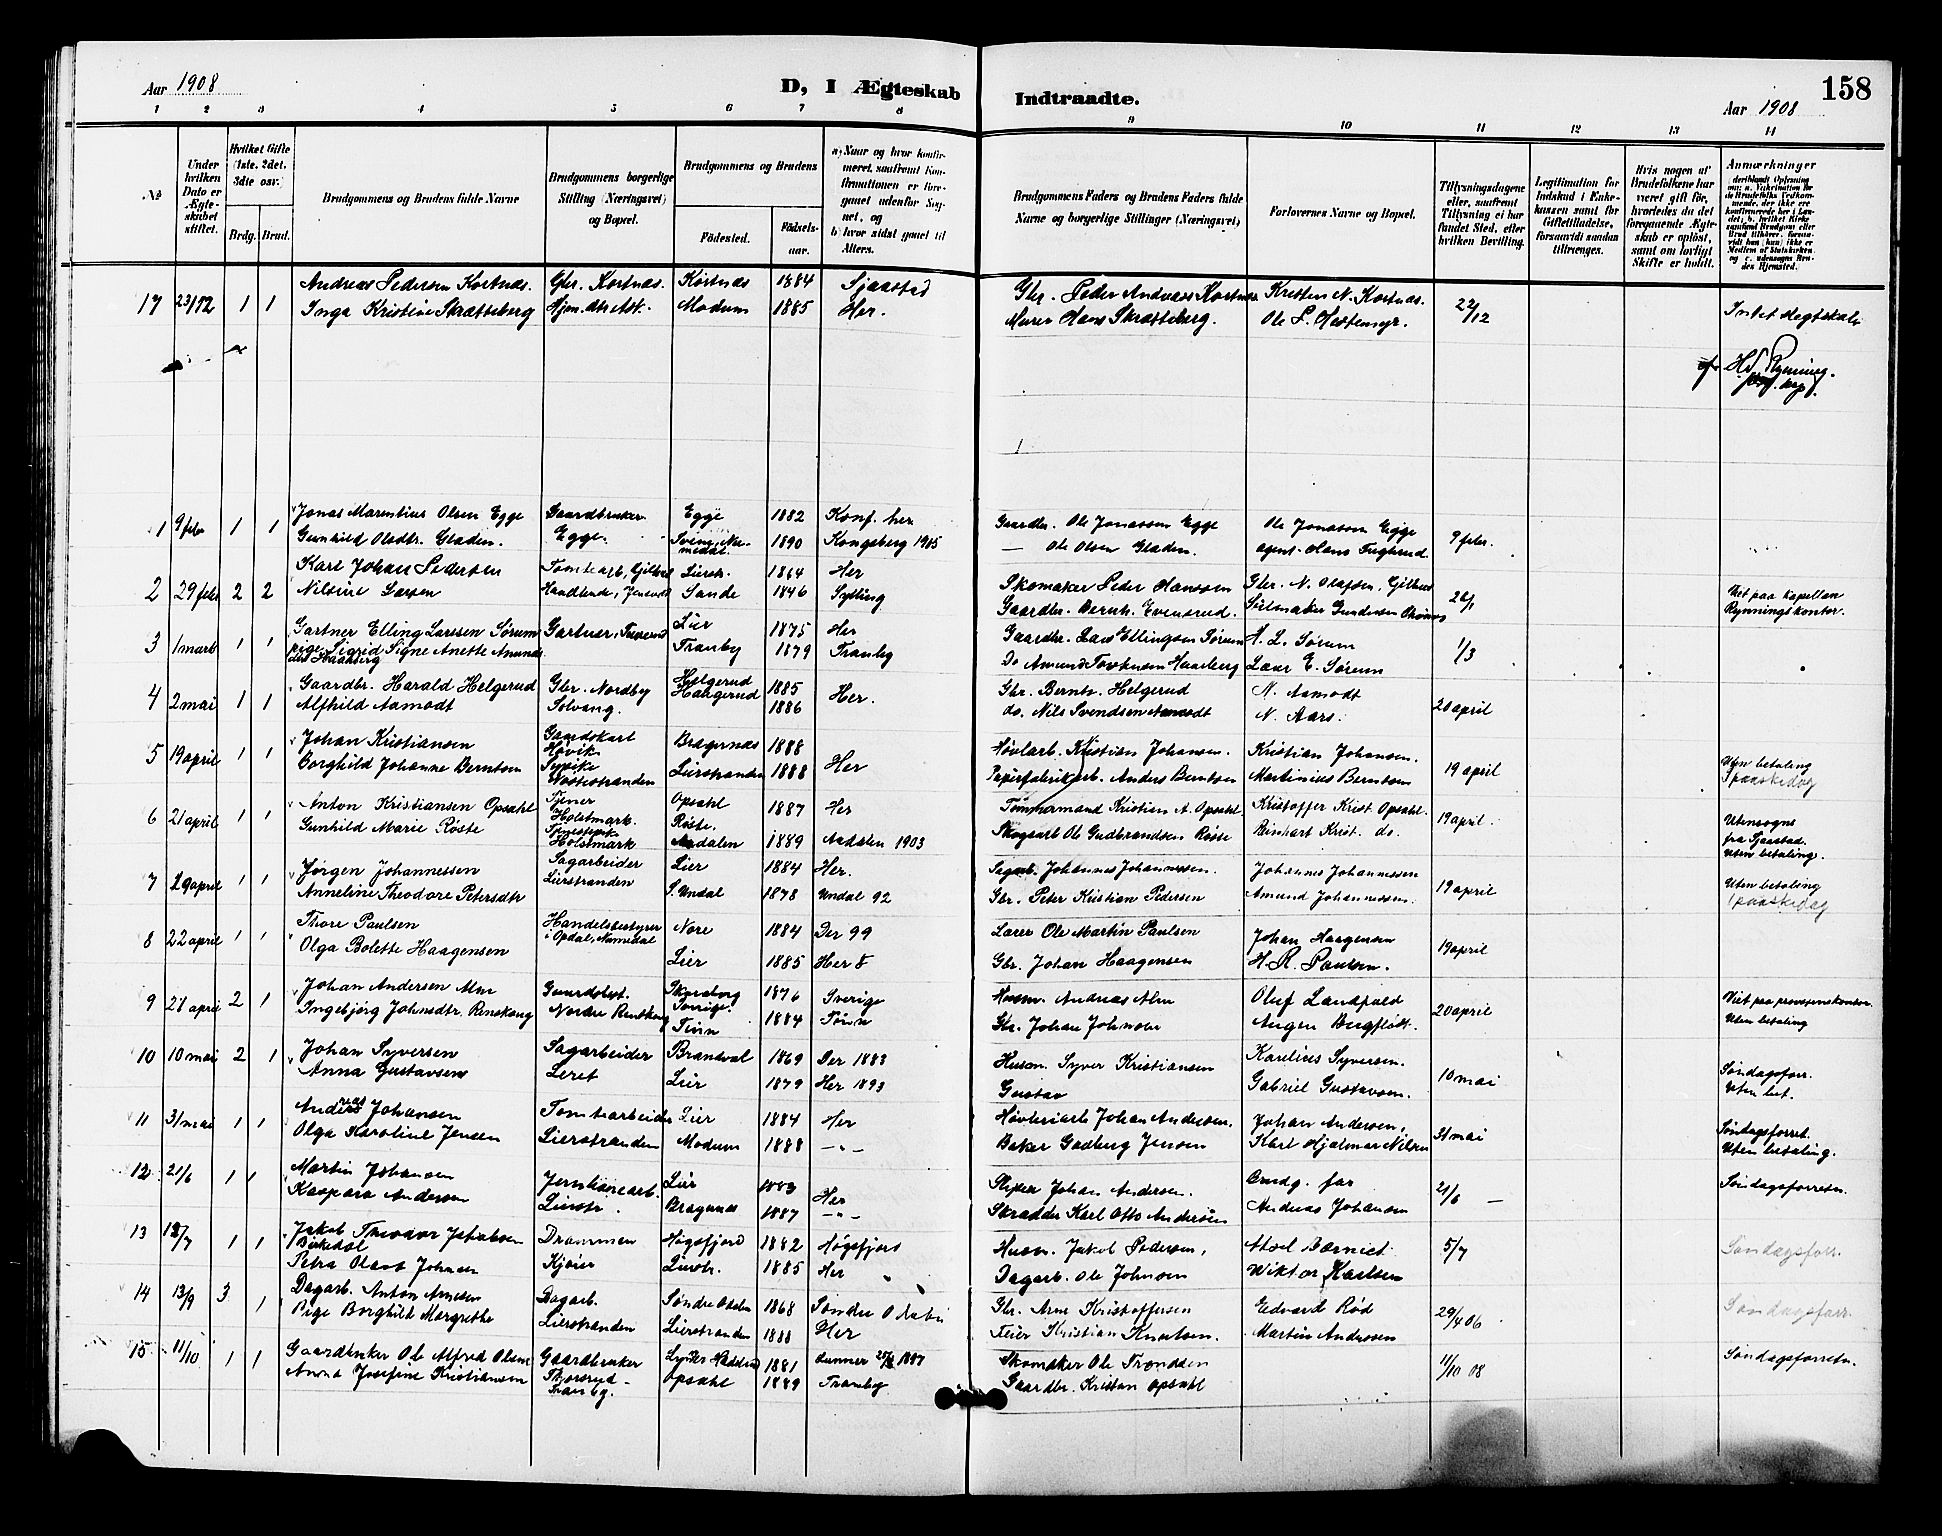 Aar 1908
D, I Ægteskab
Indtraadte.
158
Aar 1908
1 2 3 4 5 6 7 8 9 10 11 12 13 14
No
Under hvilken Dato er Ægteskabet stiftet.
Hvilket Gifte (1ste, 2det, 3die osv.)
Brdg. Brud.
Brudgommens og Brudens fulde Navne
Brudgommens borgerlige Stilling (Næringsvei) og Bopæl.
Brudgommens og Brudens
Fødested.
Fødselsaar.
a) Naar og hvor konfirmeret, saafremt Konfirmationen er foregaaet udenfor Sognet, og b) hvor sidst gaaet til Alters.
Brudgommens Faders og Brudens Faders fulde Navne og borgerlige Stillinger (Næringsvei)
Forlovernes Navne og Bopæl.
Tillysningsdagene eller, saafremt Tillysning ei har fundet Sted, efter hvilken Bevilling.
Legitimation for Indskud i Enkekassen samt for Giftetilladelse, forsaavidt saadan tiltrænges.
Hvis nogen af Brudefolkene har været gift før, hvorledes da det foregaaende Ægteskab er opløst, samt om lovligt Skifte er holdt.
Anmærkninger
17 23/12 1 1 Andreas Pedersen Kortnæs. Gbr. Kortnæs. Kortnæs 1884 Sjaastad Gbr. Peder Andreas Kortnæs Kristen N. Kortnæs. 22/12 Intet slegtskab
Inga Kristine Skretteberg Modum 1885 Her. Murer Hans Skretteberg. Ole P. Hestemyr.
Rynning.
1 9 febr 1 1 Jonas Marentius Olsen Egge Gaardbruker Egge 1882 Konf. her Gaardbr. Ole Jonassen Egge Ole Jonassen Egge 9 febr.
Gunhild Olsdtr. Gladen. Egge. 1890 Kongsberg 1905 — Ole Olsen Gladen. agent Hans Fuglerud
2 29 febr 2 2 Karl Johan Pedersen Tomtearb, Gilhus Lierstr. 1864 Her Skomaker Peder Hanssen Gbr. N. Olafsen, Gilhus 26/1 Viet paa kapellan
Nilsine Larsen Sande 1846 Sylling Gaardbr. Bernh. Evensrud. Rynnings kontor.
3 1 marts 1 1 Gartner Elling Larssen Sørum Gartner, Lier 1875 Her Gaardbr. Lars Ellingsen Sørum H. L. Sørum 1/3
pige Sigrid Signe Anette Amundsdtr Haarberg Tranby 1879 Tranby Do Amund Haarberg Laur E. Sørum
4 2 mai 1 1 Gaardbr. Harald Helgerud Gbr. Nordby Helgerud 1885 Her. Gbr. Bernt. Helgerud N. Aamodt 20 april
Alfhild Aamodt Solvang. Haagerud 1886 do. Nils Svendsen Aamodt N. Aars.
5 19 april 1 1 Johan Kristiansen Gaardskarl Høvik Bragernæs 1888 Her Høvlarb. Kristian Johansen. Kristian Johansen. 19 april Uten betaling
Borghild Johanne Berntsen Sypike Vestrestranden Lierstranden 1888 Papirfabrikarb. Anders Berntsen Martinius Berntsen 1 paaskedag
6 21 april 1 1 Anton Kristiansen Opsahl Tjener Holstmark. Opsahl 1887 Her Tømmermand Kristian A. Opsahl. Kristoffer Krist. Opsahl. 19 april. Utensogns
Gunhild Marie Røste Tjenestepike Holstmark Røste. Aadalen 1889 Aadalen 1903 Skogsarb Ole Gudbrandsen Røste Reinhart Krist. do. fra Sjaastad. Uten betaling.
7 29 april 1 1 Jørgen Johannessen Sagarbeider Lier 1884 Her. Sagarb. Johannes Johannessen. Johannes Johannessen 19 april Uten betaling
Anneline Theodore Petersdtr Lierstranden S. Undal 1878 Undal 92 Gbr. Peter Kristian Pedersen Amund Johannessen. 1 paaskedag
8 22 april 1 1 Thore Paulsen Handelsbestyrer Nore 1884 Der 99 Lærer Ole Martin Paulsen Johan Haagensen 19 april
Olga Bolette Haagensen i Opdal, Numedal Lier 1885 Her Gbr. Johan Haagensen H. R. Paulsen.
9 28 april 2 1 Johan Andersen Alm Gaardsbest. Skaraborg Sverige. 1876 Sverige Husm. Andreas Alm Oluf Landfald 20 april Viet paa provstens kontor.
Ingebjørg Johnsdtr. Renskaug Nordre Renskaug Tinn 1884 Tinn Gbr. Johan Johnsen Uten betaling
10 10 mai 2 1 Johan Syversen Sagarbeider Brandval 1869 Der 1883 Husm. Syver Kristiansen Karelius Syversen. 10 mai Søndagsforr.
Anna Gustavsen Leret Lier 1879 Her 1893 Gustav Gabriel Gustavsen. Uten bet.
11 31 mai 1 1 Andreas Johansen Tomtearbeider Lier 1884 Her Høvleriarb. Johan Andersen. Johan Andersen, 31 mai Søndagsforret.
Olga Karoline Jensen Lierstranden Modum 1888 — " — Baker Gadberg Jensen Karl Hjalmar Nilsen Uten betaling.
12 21/6 1 1 Martin Johansen Jernbanearb. Lier 1883 Her Johan Andersen. Brudg. far 21/6 — Søndagsforretn.
Kaspara Andersen Lierstr. Bragernæs 1887 — " — Skrædder Karl Otto Andersen Andreas Johansen
13 12/7 1 1 Jakob Theodor Jakobsen Birkedal Drammen Høgsfjord 1882 Høgsfjord Husm. Jakob Pedersen, 5/7 Søndagsforr.
Petra Olava Johnsen Kjøier Lierstr. 1885 Her Dagarb. Ole Johnsen Wiktor Karlsen
14 13/9 3 1 Dagarb. Anton Arnesen Dagarb. Søndre Odalen 1868 Søndre Odalen Gbr. Arne Kristoffersen Edvard Rød 29/4 06 Søndagsforr.
Pige Borghild Margrethe Lierstranden Lierstranden 1888 Her Feier Kristian Knutsen. Martin Andersen
15 11/10 1 1 Gaardbruker Ole Alfred Olsen Gaardbruker 1881 Lunner Skomaker Ole Trondsen 11/10 08 Søndagsforretn.
Anna Josefine Kristiansen Tranby. Opsahl 1889 Tranby Gaardbr. Kristian Opsahl